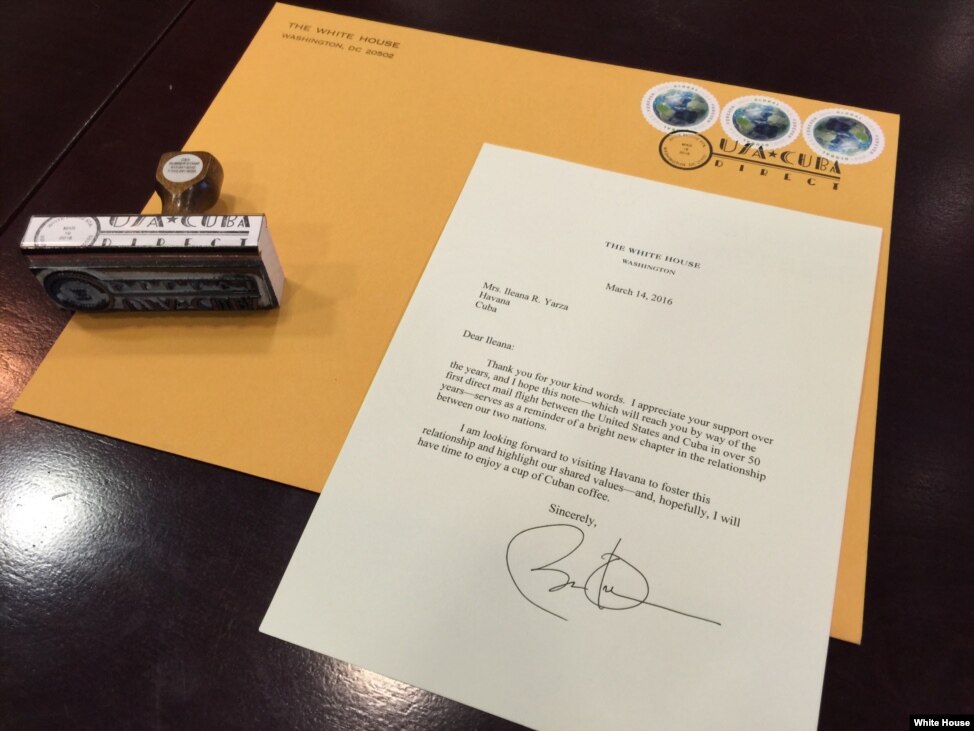 THE WHITE HOUSE
WASHINGTON, DC 20502
GLOBAL
FOREVER
GLOBAL
FOREVER
GLOBAL
FOREVER
MAR
2016
USA★CUBA
DIRECT
USA★CUBA
DIRECT
THE WHITE HOUSE
WASHINGTON
March 14, 2016
Mrs. Ileana R. Yarza
Havana
Cuba
Dear Ileana:
Thank you for your kind words. I appreciate your support over
the years, and I hope this note—which will reach you by way of the
first direct mail flight between the United States and Cuba in over 50
years—serves as a reminder of a bright new chapter in the relationship
between our two nations.
I am looking forward to visiting Havana to foster this
relationship and highlight our shared values—and, hopefully, I will
have time to enjoy a cup of Cuban coffee.
Sincerely,
White House